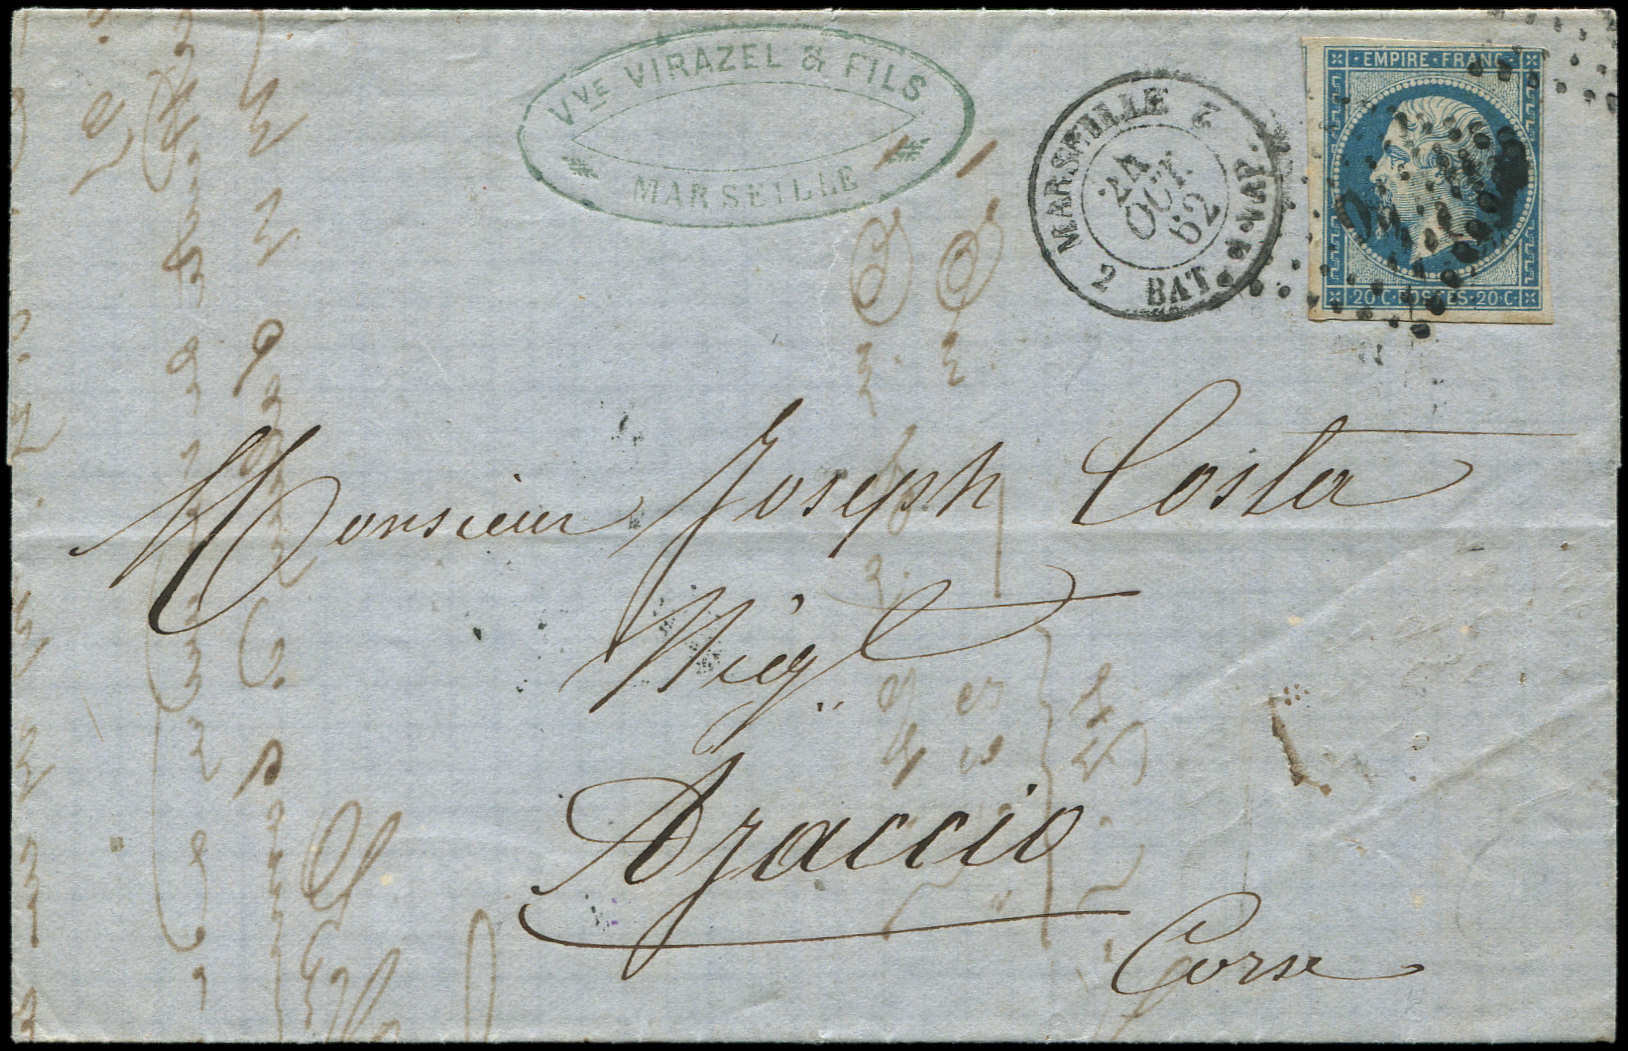 Vve VIRAZEL & FILS
MARSEILLE
MARSEILLE
2 BAT. À VAP.
24
OCT.
62
EMPIRE FRANC
20 C. POSTES 20 C.
Monsieur Joseph Costa
Nég.t
Ajaccio
Corse